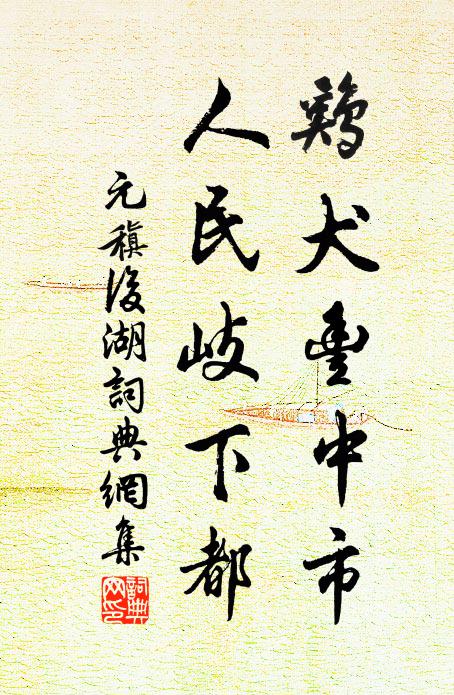 鷄犬豐中市
人民岐下都
元稹後湖詞典網集
詞典
网印